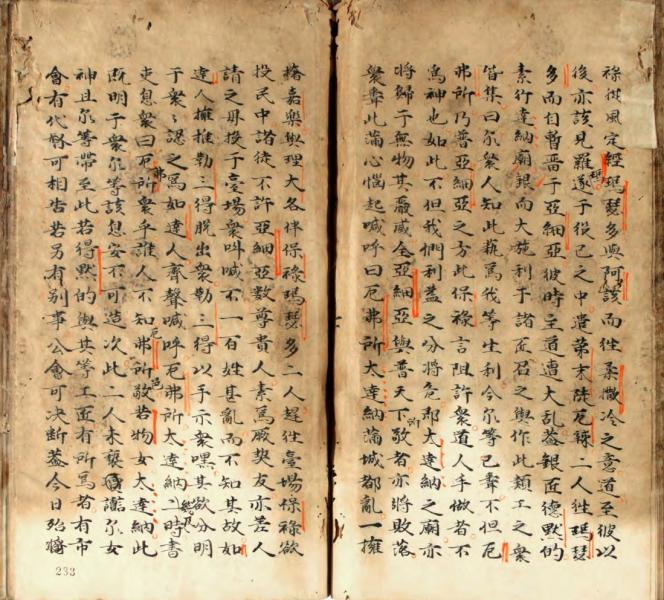 祿從風定經瑪瑟多與阿該而徃柔撒冷之意道至彼以
後亦該見羅瑪遂于從己之中遣第末陡厄釋二人徃瑪瑟
多而自暫畱于亞細亞彼時主道遭大亂蓋銀匠德黙的
素行達納廟銀而大施利于諸匠召之與作此類工之衆
皆集曰尔衆人知此藝爲我等生利今尔等已聾不但厄
弗所乃普亞細亞之方此保祿言阻許衆道人手做者不
爲神也如此不但我們利益之分將危即太達納之廟亦
將歸于無物其嚴威全亞細亞與普天下所敬者亦將敗落
衆聾此滿心惱起喊呼曰厄弗所太達納滿城都亂一擁
擒嘉樂與理大各伴保祿瑪瑟多二人趕徃臺場保祿欲
投民中諸徒不許亞細亞數尊貴人素爲厥契友亦差人
請之毋投于臺場衆叫喊不一百姓甚亂而不知其故如
達人擁推勒三得脫出衆勒三得以手示衆嘿其欲分明
于衆衆認之爲如達人齊聲喊呼厄弗所太達納二時書
吏息衆曰厄弗所衆乎誰人不知厄弗所敬若物女太達納此
既明于衆尔等該息安不可造次此二人未褻謠尔女
神且尔等帶至此若得黙的與其等工匠有所爲者有市
會有代縣可相告若另有别事公會可决斷蓋今日殆將
233